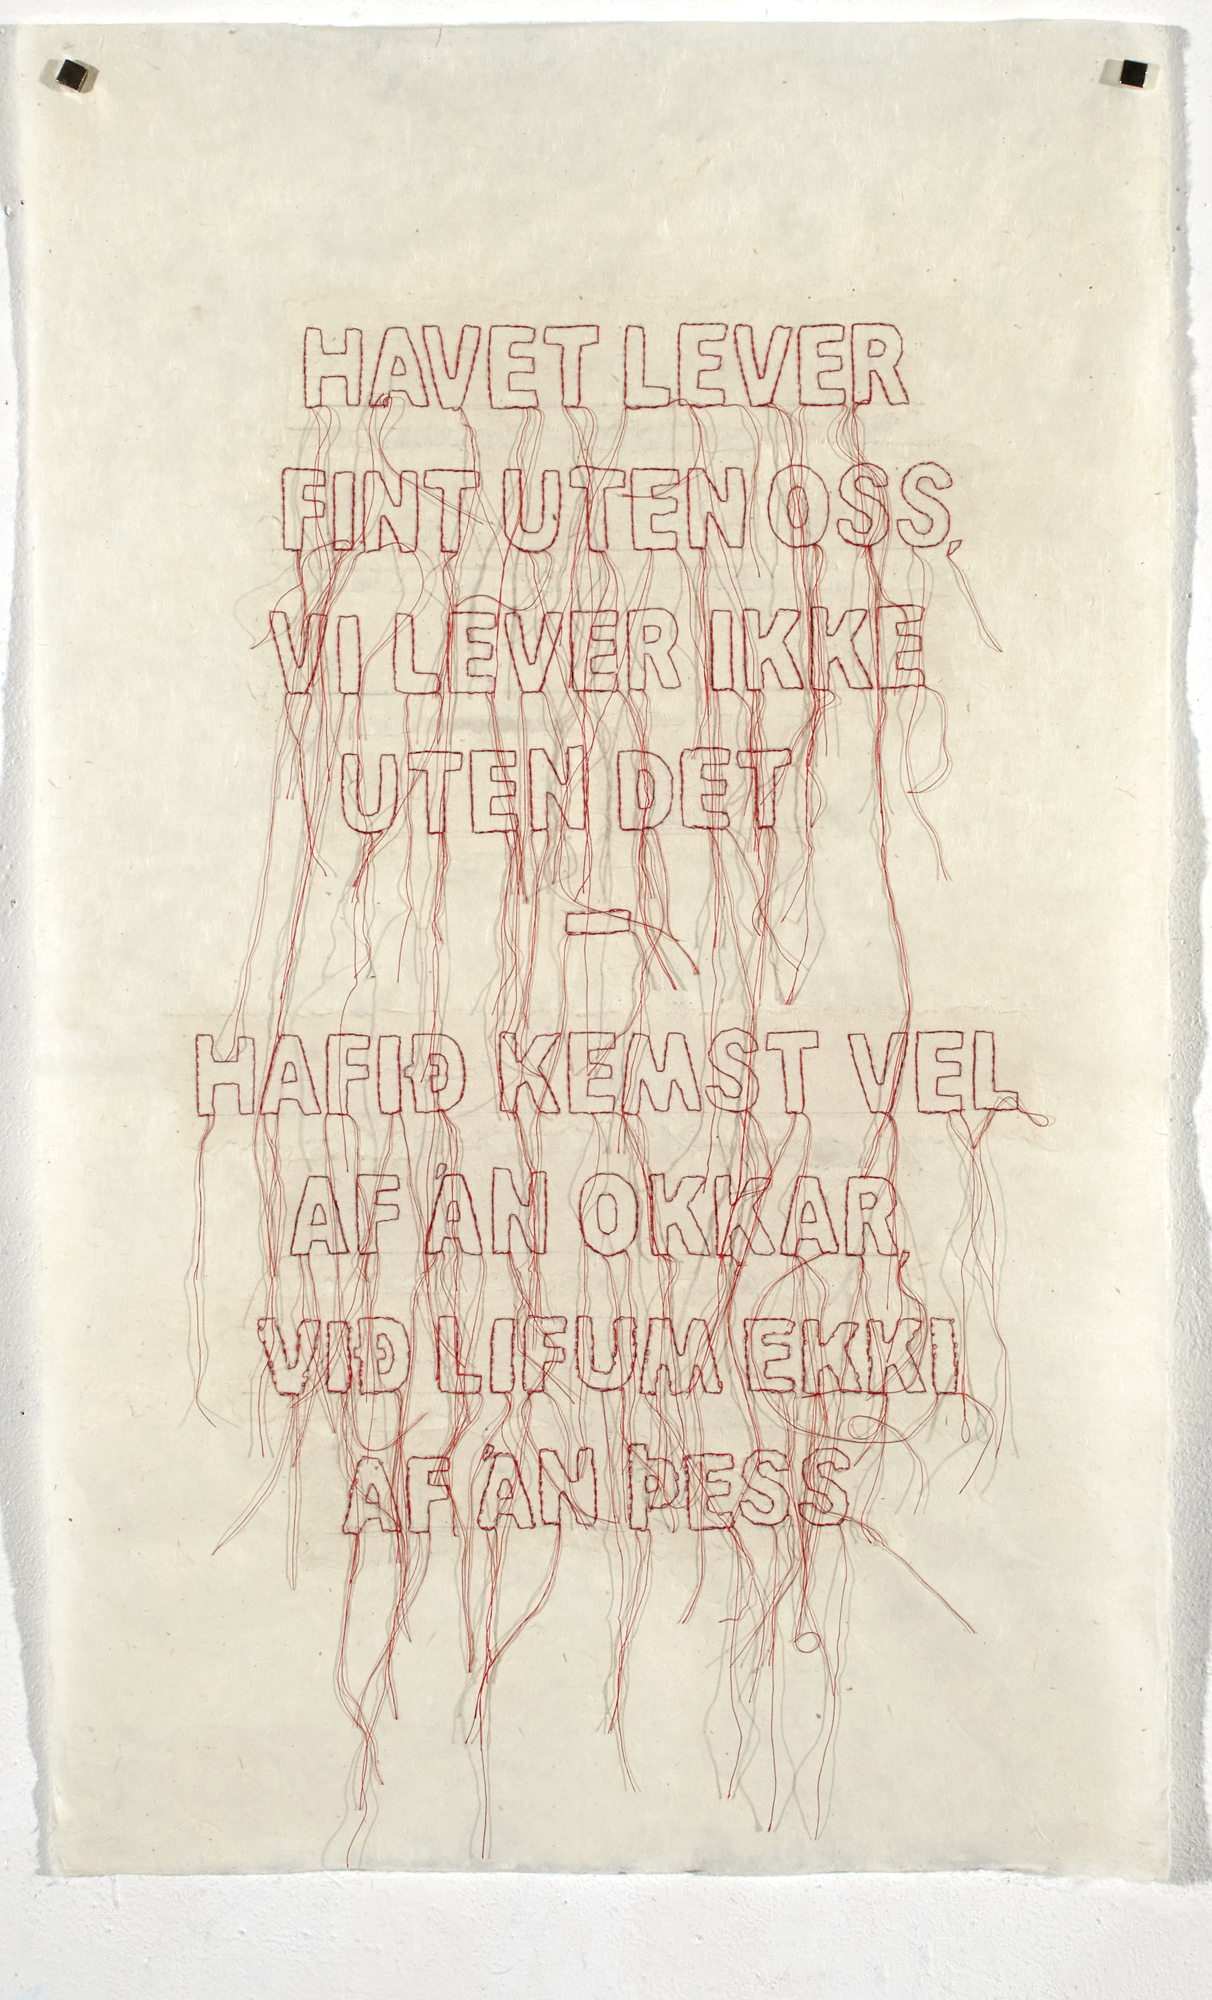 HAVET LEVER
FINT UTEN OSS,
VI LEVER IKKE
UTEN DET
–
HAFIÐ KEMST VEL
AF ÁN OKKAR,
VIÐ LIFUM EKKI
AF ÁN ÞESS